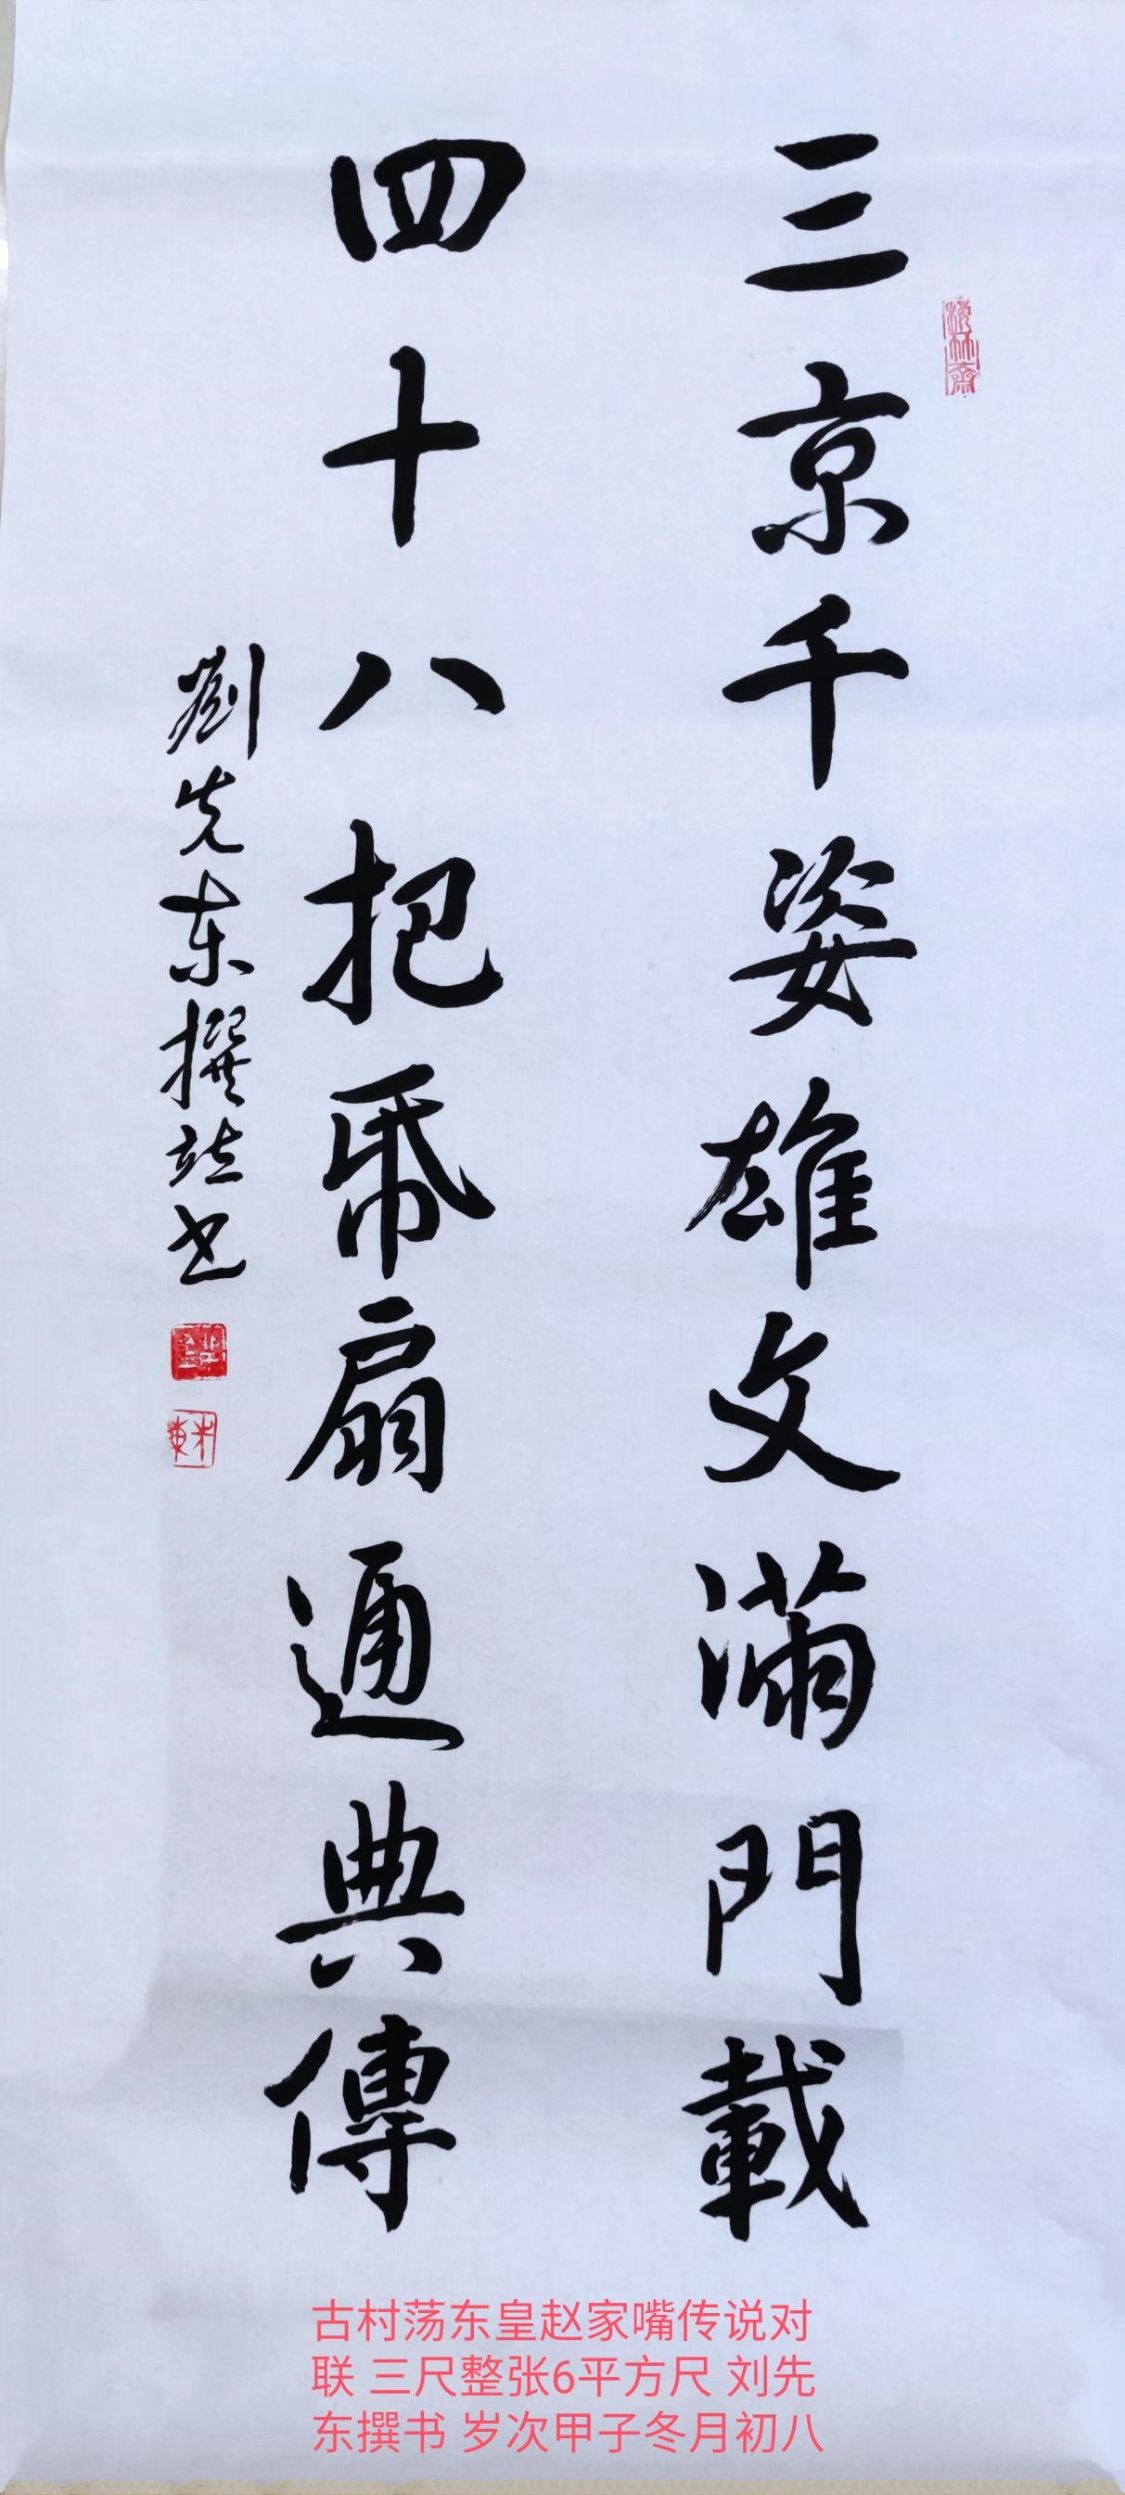 三京千姿雄文滿門載
四十八把帋扇通典傳
劉先东撰並书
古村荡东皇赵家嘴传说对
联 三尺整张6平方尺 刘先
东撰书 岁次甲子冬月初八